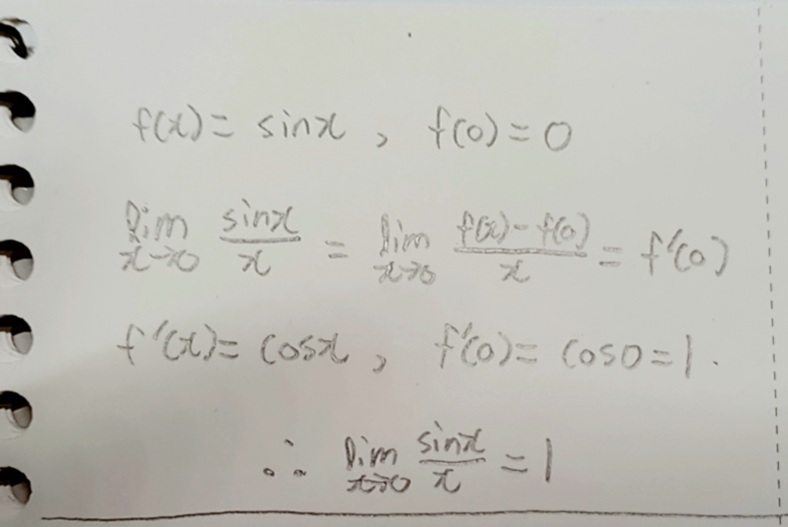 f(x) = sinx , f(0) = 0
lim x→0 sinx/x = lim x→0 (f(x) - f(0))/x = f'(0)
f'(x) = cosx , f'(0) = cos0 = 1 .
∴ lim x→0 sinx/x = 1